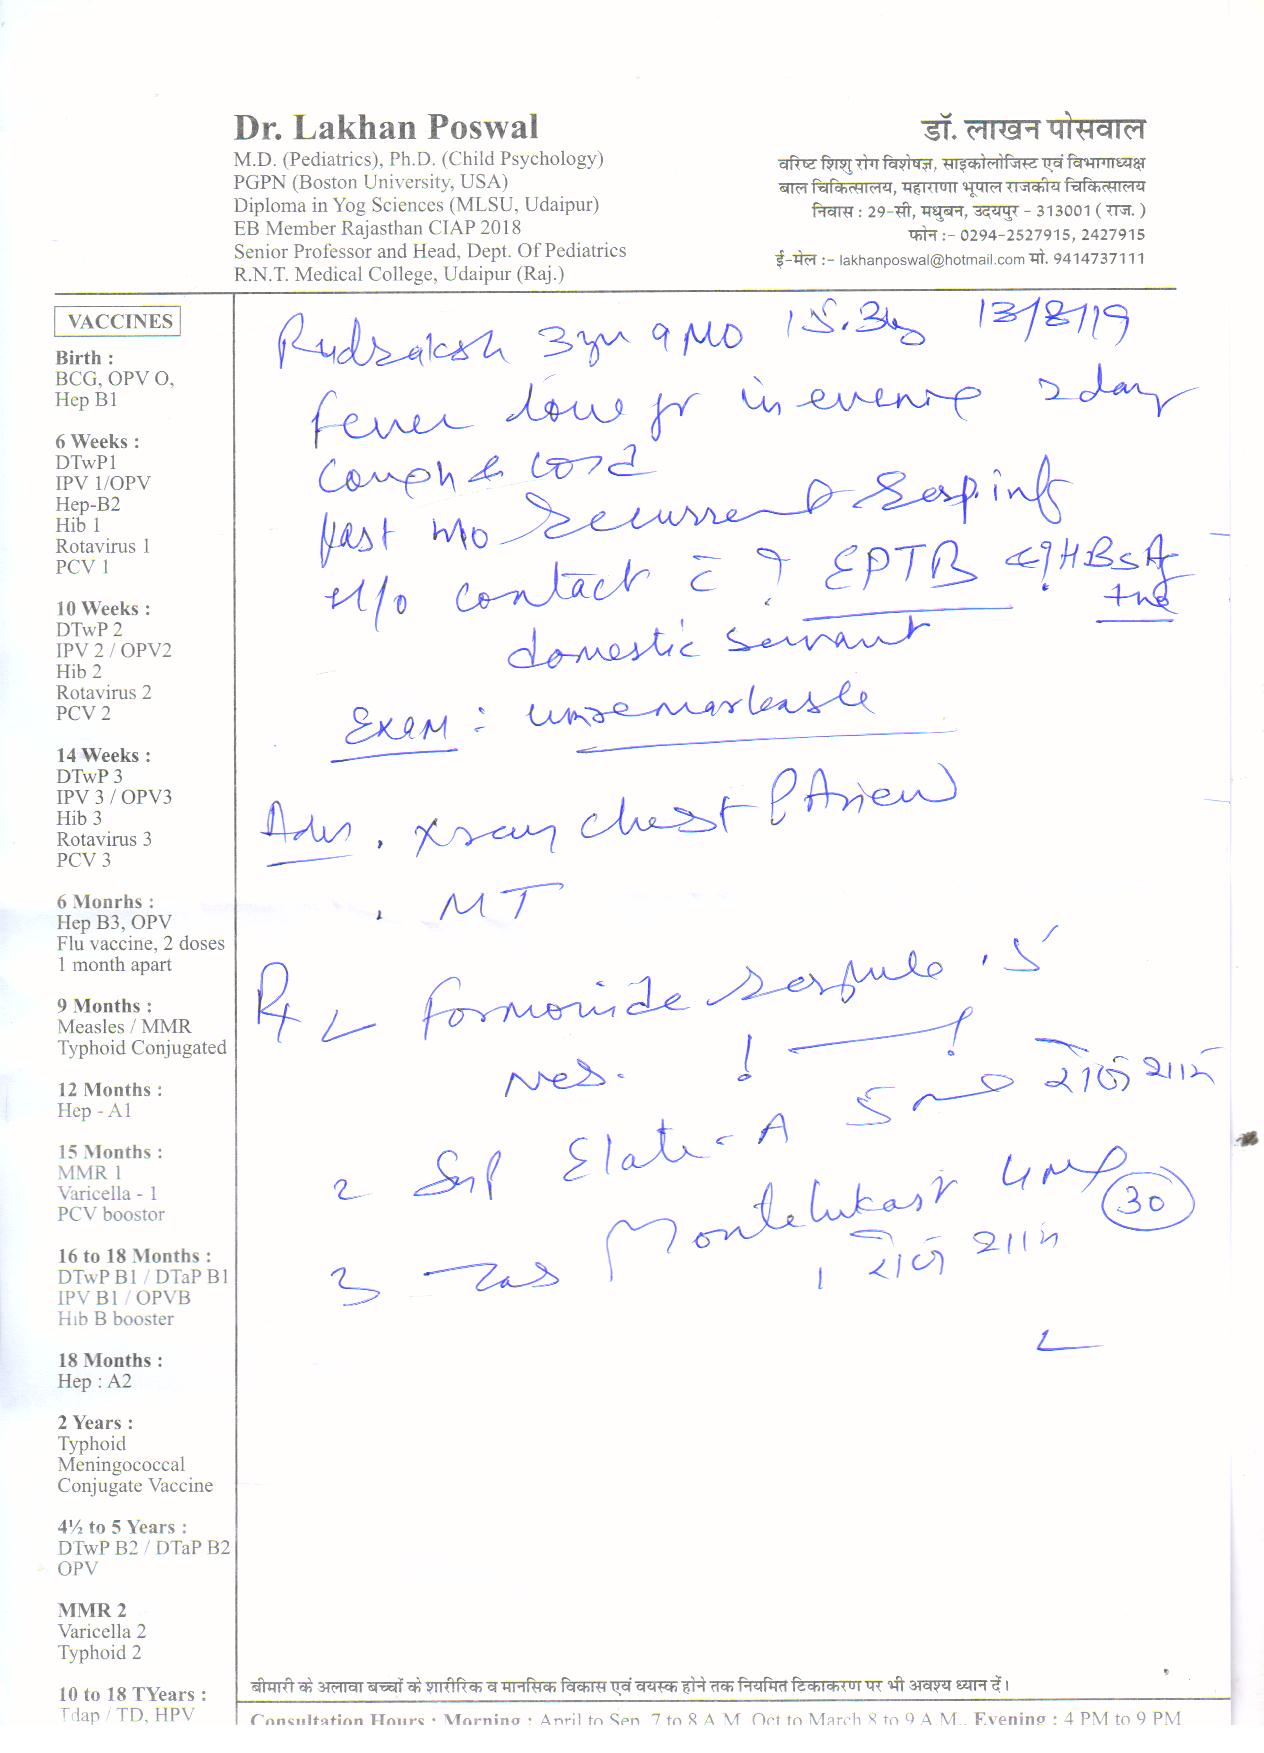 Dr. Lakhan Poswal
M.D. (Pediatrics), Ph.D. (Child Psychology)
PGPN (Boston University, USA)
Diploma in Yog Sciences (MLSU, Udaipur)
EB Member Rajasthan CIAP 2018
Senior Professor and Head, Dept. Of Pediatrics
R.N.T. Medical College, Udaipur (Raj.)
डॉ. लाखन पोसवाल
वरिष्ट शिशु रोग विशेषज्ञ, साइकोलोजिस्ट एवं विभागाध्यक्ष
बाल चिकित्सालय, महाराणा भूपाल राजकीय चिकित्सालय
निवास : 29-सी, मधुबन, उदयपुर - 313001 ( राज. )
फोन :- 0294-2527915, 2427915
ई-मेल :- lakhanposwal@hotmail.com मो. 9414737111
VACCINES
Birth :
BCG, OPV O,
Hep B1
6 Weeks :
DTwP1
IPV 1/OPV
Hep-B2
Hib 1
Rotavirus 1
PCV 1
10 Weeks :
DTwP 2
IPV 2 / OPV2
Hib 2
Rotavirus 2
PCV 2
14 Weeks :
DTwP 3
IPV 3 / OPV3
Hib 3
Rotavirus 3
PCV 3
6 Monrhs :
Hep B3, OPV
Flu vaccine, 2 doses
1 month apart
9 Months :
Measles / MMR
Typhoid Conjugated
12 Months :
Hep - A1
15 Months :
MMR 1
Varicella - 1
PCV boostor
16 to 18 Months :
DTwP B1 / DTaP B1
IPV B1 / OPVB
Hib B booster
18 Months :
Hep : A2
2 Years :
Typhoid
Meningococcal
Conjugate Vaccine
4½ to 5 Years :
DTwP B2 / DTaP B2
OPV
MMR 2
Varicella 2
Typhoid 2
10 to 18 TYears :
Tdap / TD, HPV
Rudraksh 3yr 9 MO 15.3kg 13/8/19
fever in evening 2 day
Cough & cold
past H/o recurrent resp. inf
H/o contact c̄ ? EPTB HBsAg
+ve
domestic servant
Exam : unremarkable
Adv . xray chest PA view
. MT
Rx Formonide respule .5
Neb. ! — !
2 Syp Elate - A 5 ml रोज शाम
3 Tab Montelukast 4mg 30
1 रोज शाम
बीमारी के अलावा बच्चों के शारीरिक व मानसिक विकास एवं वयस्क होने तक नियमित टिकाकरण पर भी अवश्य ध्यान दें।
Consultation Hours : Morning : April to Sep. 7 to 8 A.M. Oct to March 8 to 9 A.M., Evening : 4 PM to 9 PM